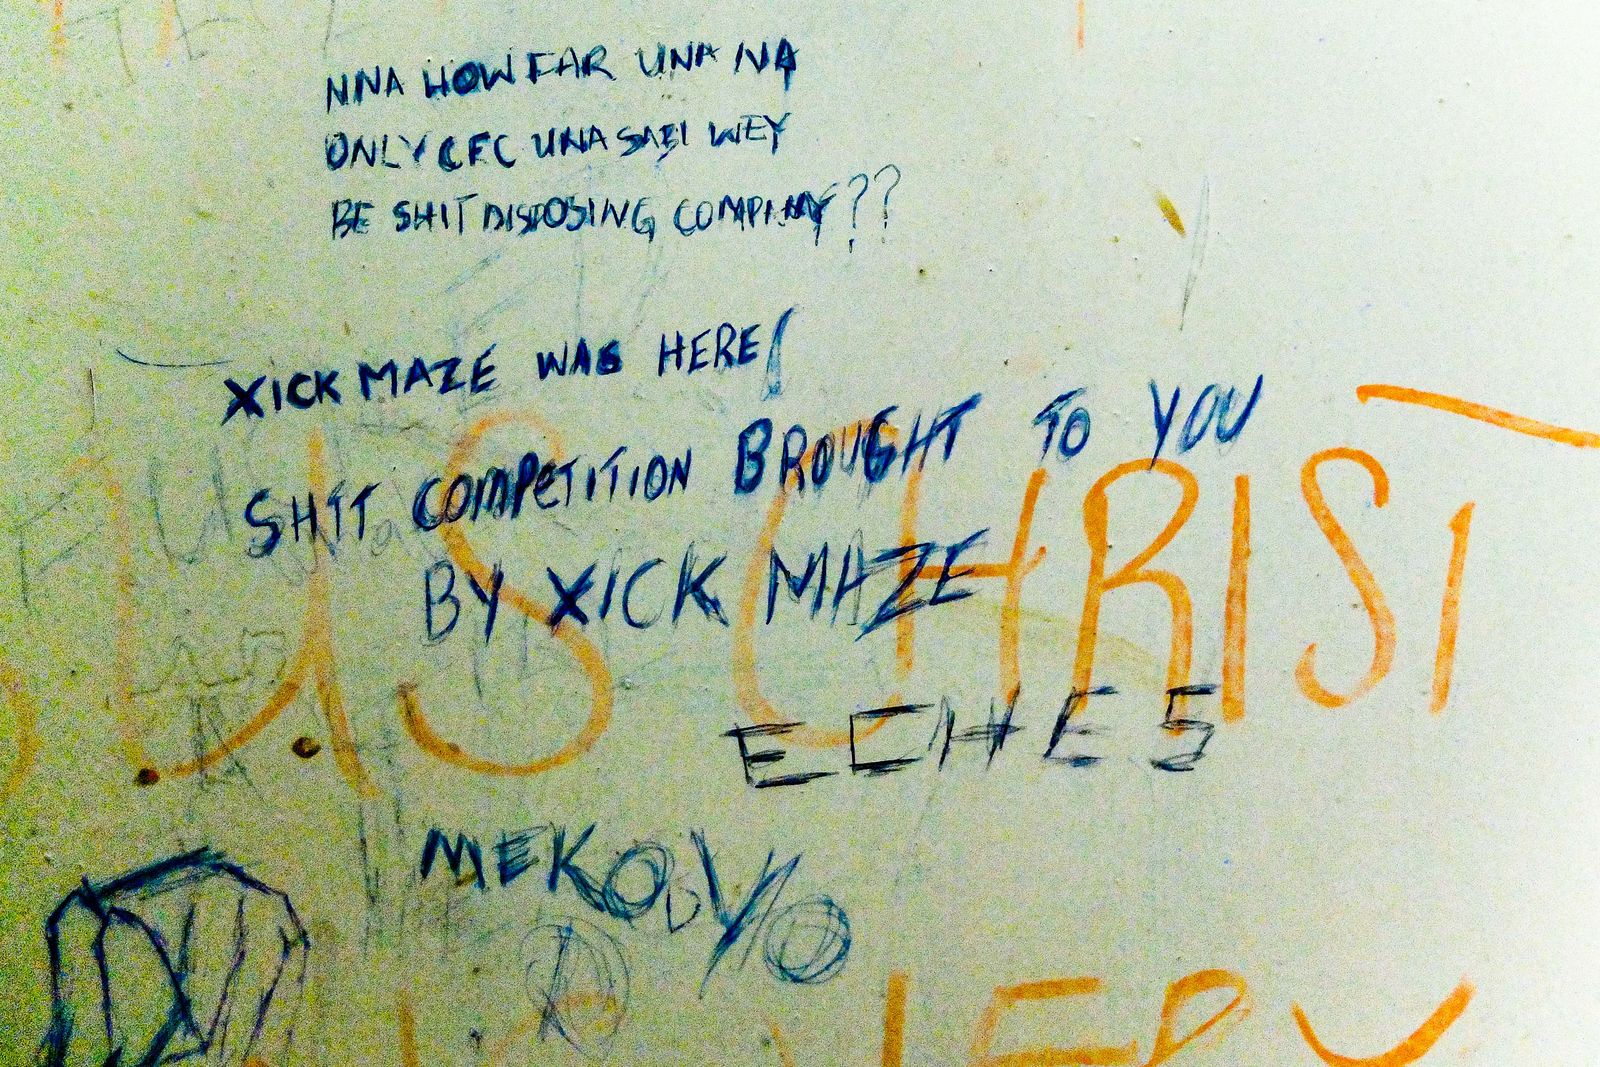 NNA HOW FAR UNA NA
ONLY CFC UNA SABI WEY
BE SHIT DISPOSING COMPANY??
XICK MAZE WAS HERE!
SHIT COMPETITION BROUGHT TO YOU
BY XICK MAZE
US CHRIST
ECHES
MEKOBYO